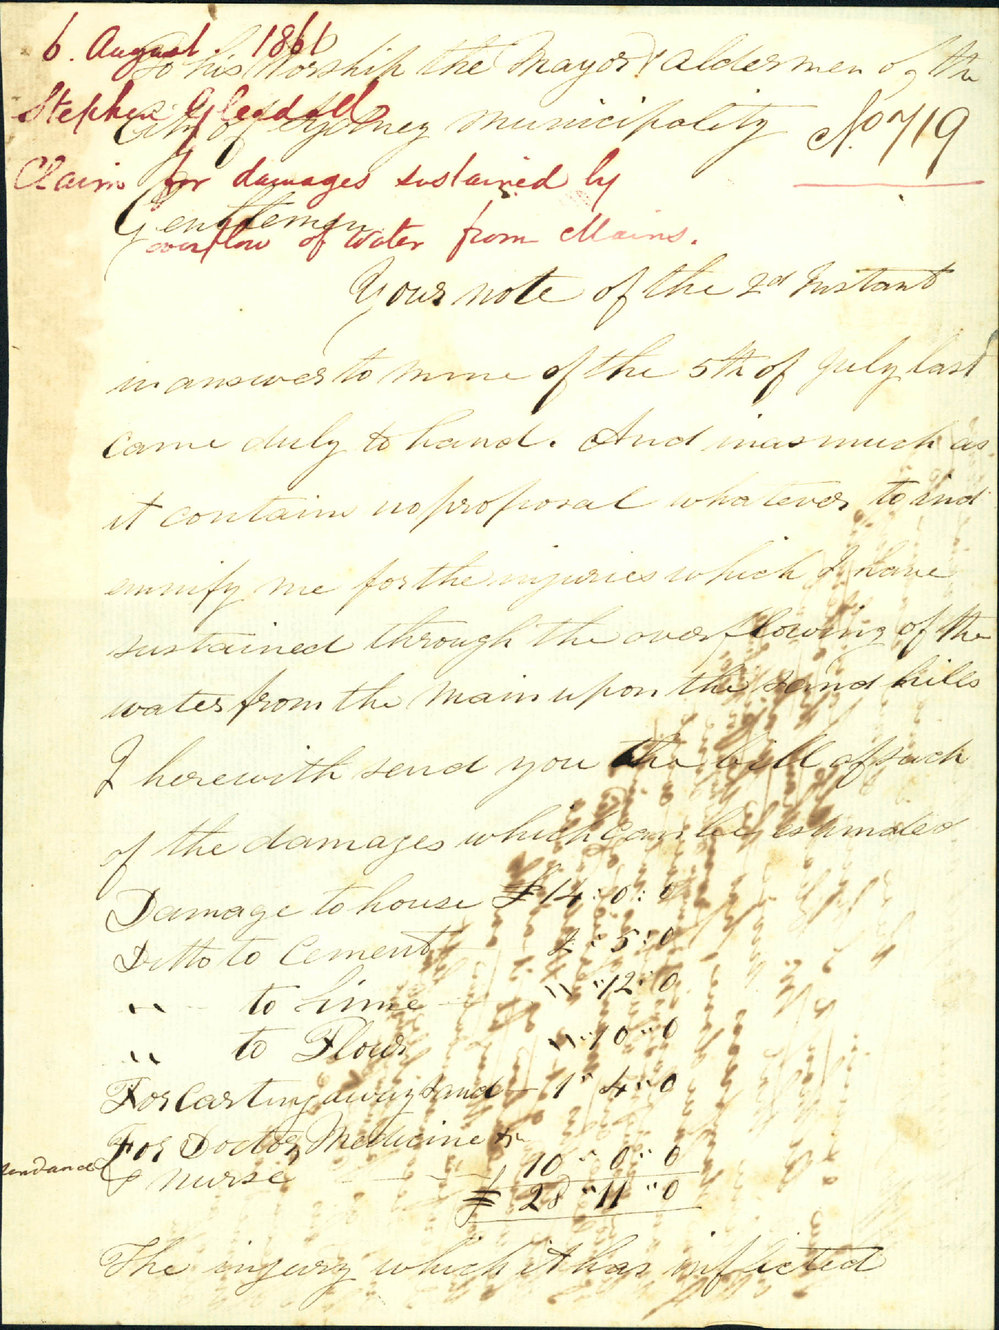 6. August. 1861
Stephen Gleadall
Claim for damages sustained by
overflow of water from Mains.
No. 719
To his Worship the Mayor & Aldermen of the
City of Sydney Municipality
Gentlemen
Your note of the 2d Instant
in answer to mine of the 5th of July last
came duly to hand. And inasmuch as
it contain no proposal whatever to ind
emnify me for the injuries which I have
sustained through the overflowing of the
water from the main upon the sand hills
I herewith send you the bill of such
of the damages which can be estimated
Damage to house £14:0:0
Ditto to Cement 2"5:0
" to Lime " "12"0
" to Flour " "10"0
For Carting away sand 1"4"0
For Doctor, Medicine &
tendance & Nurse 10"0"0
£28"11"0
The injury which it has inflicted